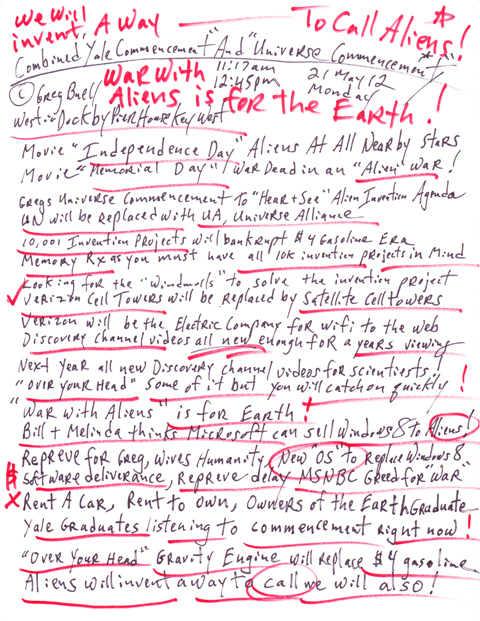 We Will
invent. A Way — To Call Aliens!
Combined Yale Commencement "And" Universe Commencement
11:17am 21 May 12
© Greg Buell 12:45pm Monday
WaR With
Aliens is FoR the EaRth!
West "in" Dock by Pier House Key West
Movie "Independence Day" Aliens At All Nearby Stars
Movie "Memorial Day"! War Dead in an "Alien" War!
Gregs Universe Commencement To "Hear + See" Alien Invention Agenda
UN will be replaced with UA, Universe Alliance
10,001 Invention Projects will bankrupt $4 Gasoline Era
Memory Rx as you must have all 10K invention projects in Mind
Looking for the "windmills" to solve the invention project
Verizon Cell Towers will be replaced by Satellite Cell towers
Verizon will be the Electric Company for wifi to the web
Discovery channel videos all new enough for a years viewing
Next Year all new Discovery channel videos for scientists,
"over your Head" Some of it but you will catch on quickly!
"War with Aliens" is for Earth!
Bill + Melinda thinks Microsoft can sell Windows 8 to Aliens!
Repreve for Greg, Wives Humanity, New "OS" to Replace Windows 8
$ Software deliverance, Repreve delay MSNBC Greed for "War"
X Rent A Car, Rent to Own, Owners of the Earth Graduate
Yale Graduates listening to commencement right now!
"Over Your Head" Gravity Engine will replace $4 gasoline
Aliens will invent a way to call we will also!